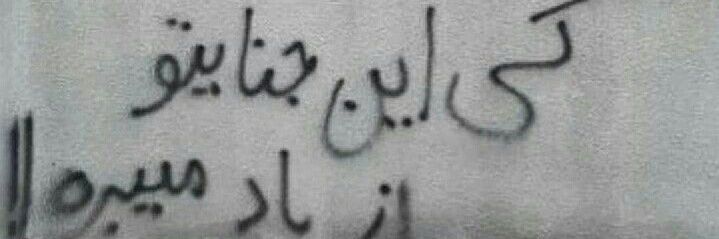 کی این جنایتو
از یاد میبره!!